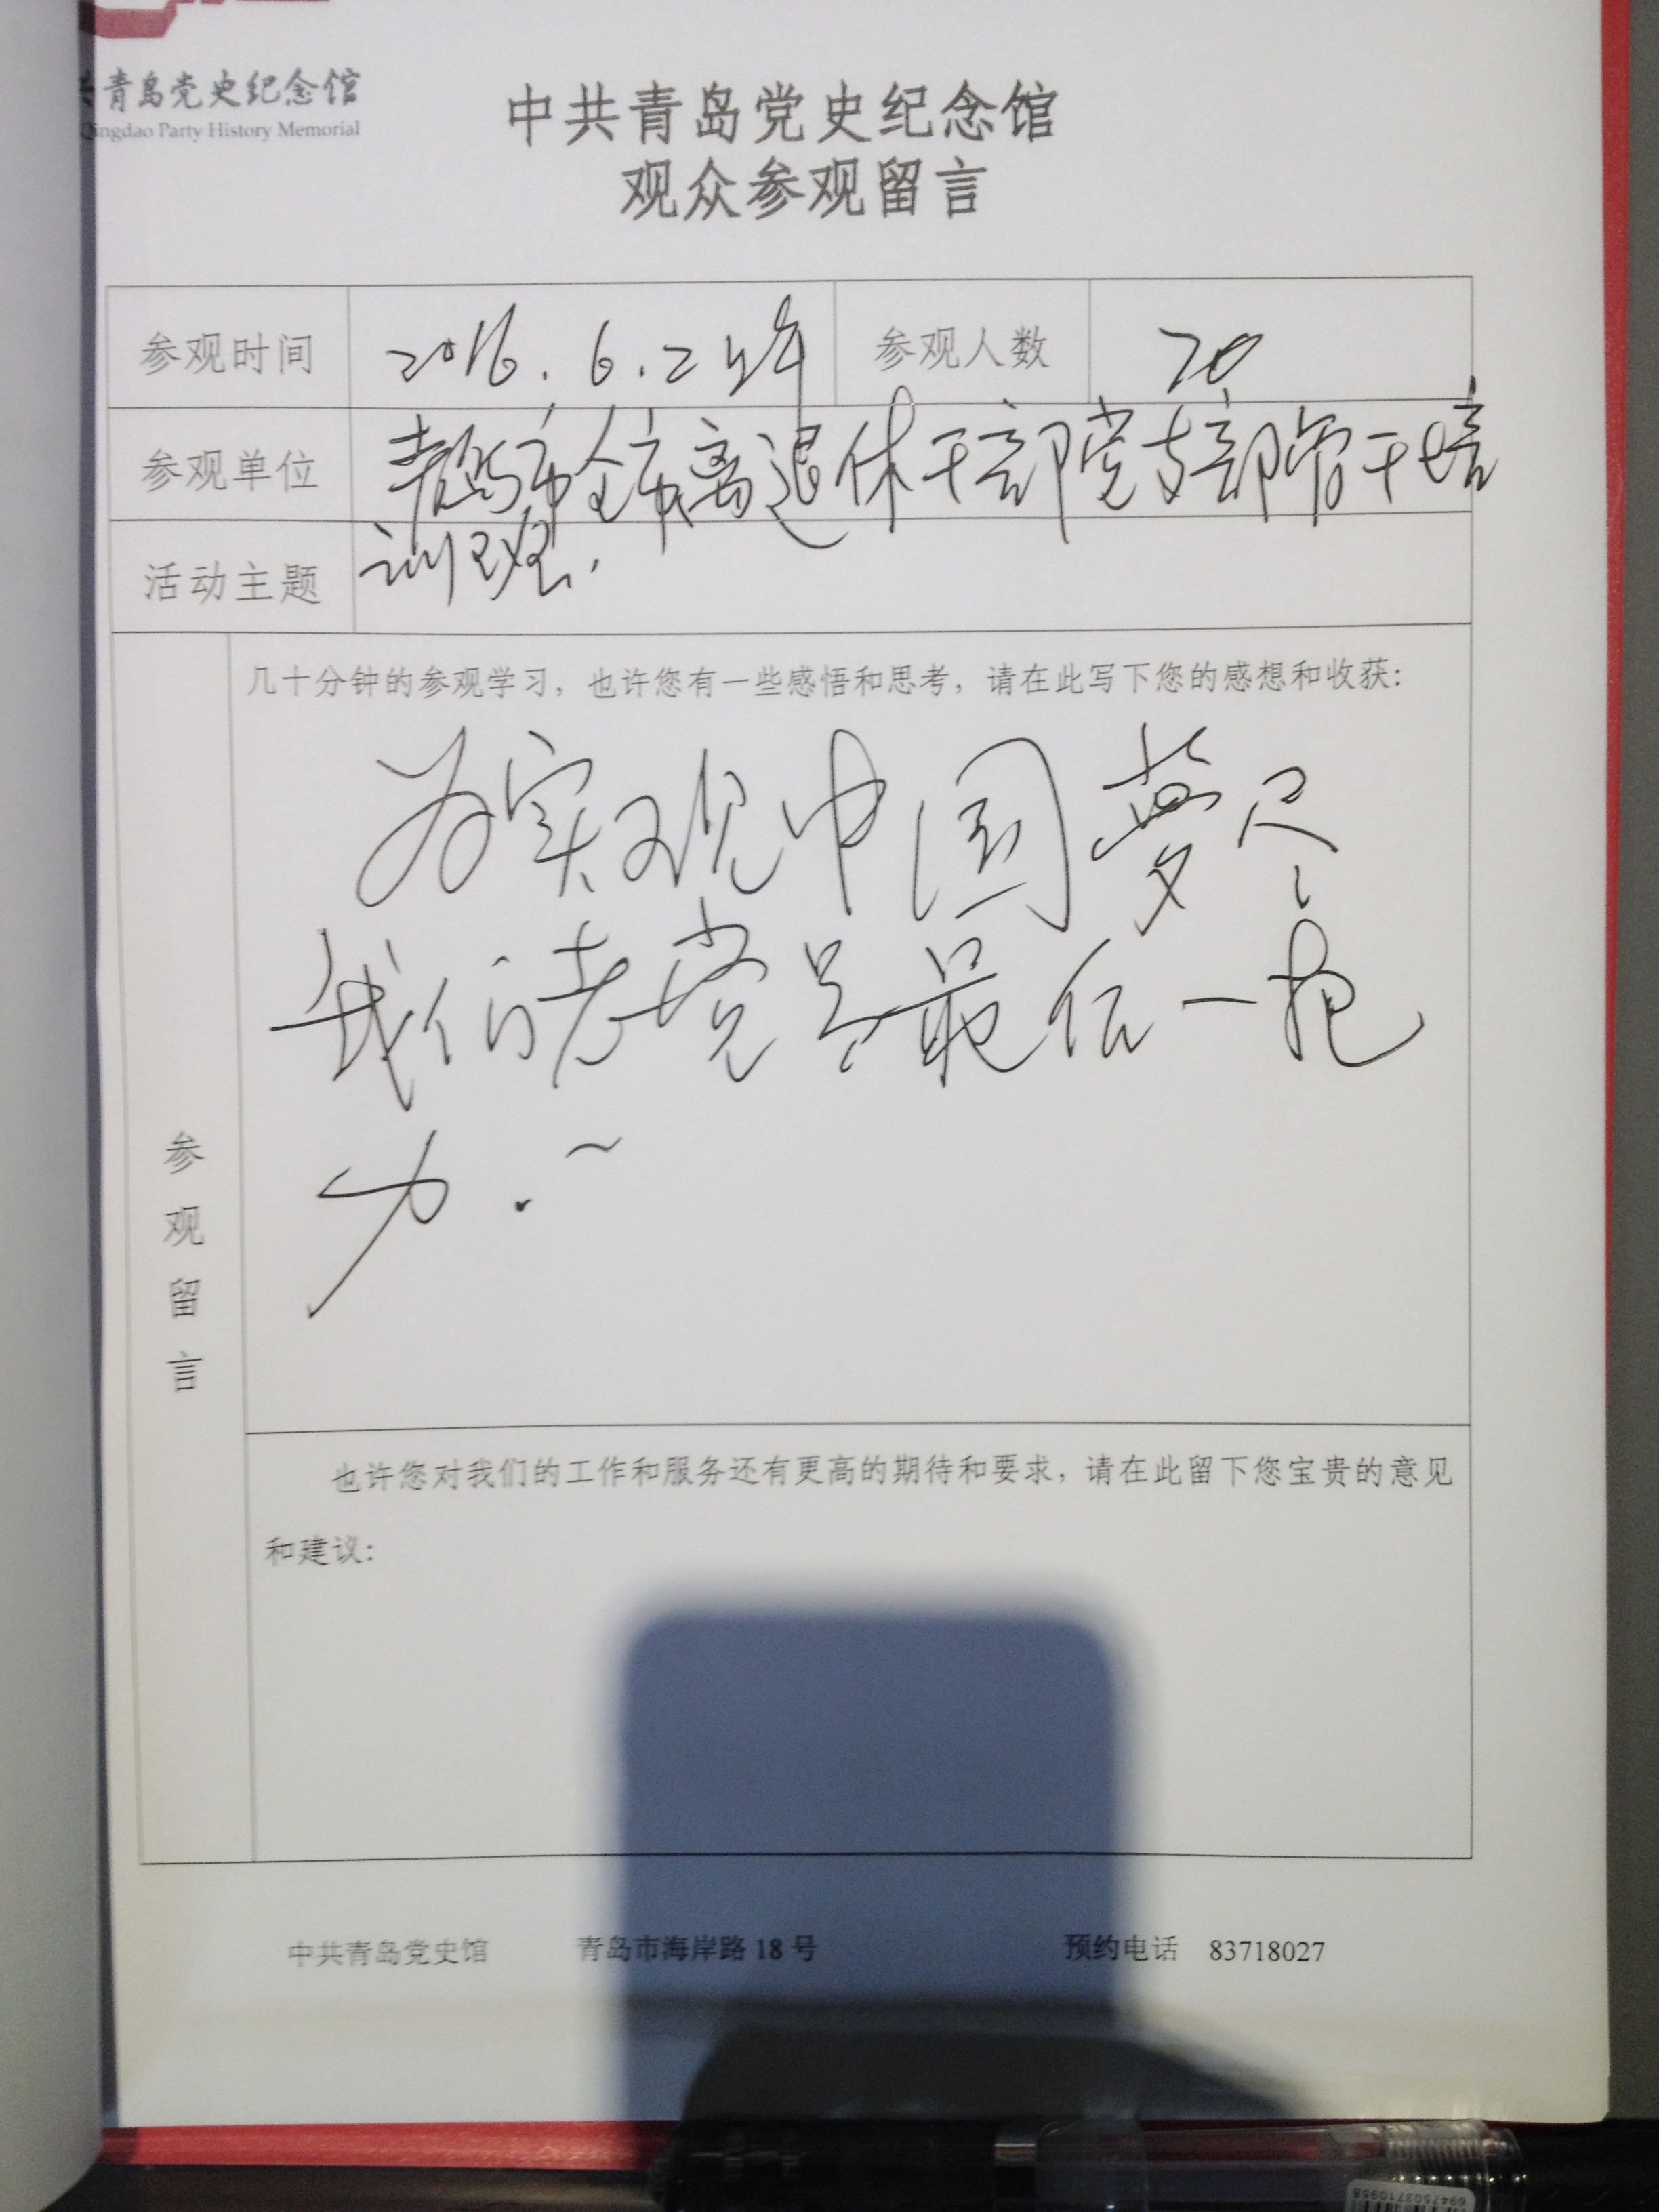 共青岛党史纪念馆
Qingdao Party History Memorial
中共青岛党史纪念馆
观众参观留言
参观时间 2016.6.2 参观人数 70
参观单位 青岛市全市离退休干部党支部骨干培
训班.
活动主题
几十分钟的参观学习，也许您有一些感悟和思考，请在此写下您的感想和收获：
为实现中国梦尽
我们老党员最后一抱
力.~
参观留言
也许您对我们的工作和服务还有更高的期待和要求，请在此留下您宝贵的意见
和建议：
中共青岛党史馆 青岛市海岸路 18 号 预约电话 83718027
6947503710958